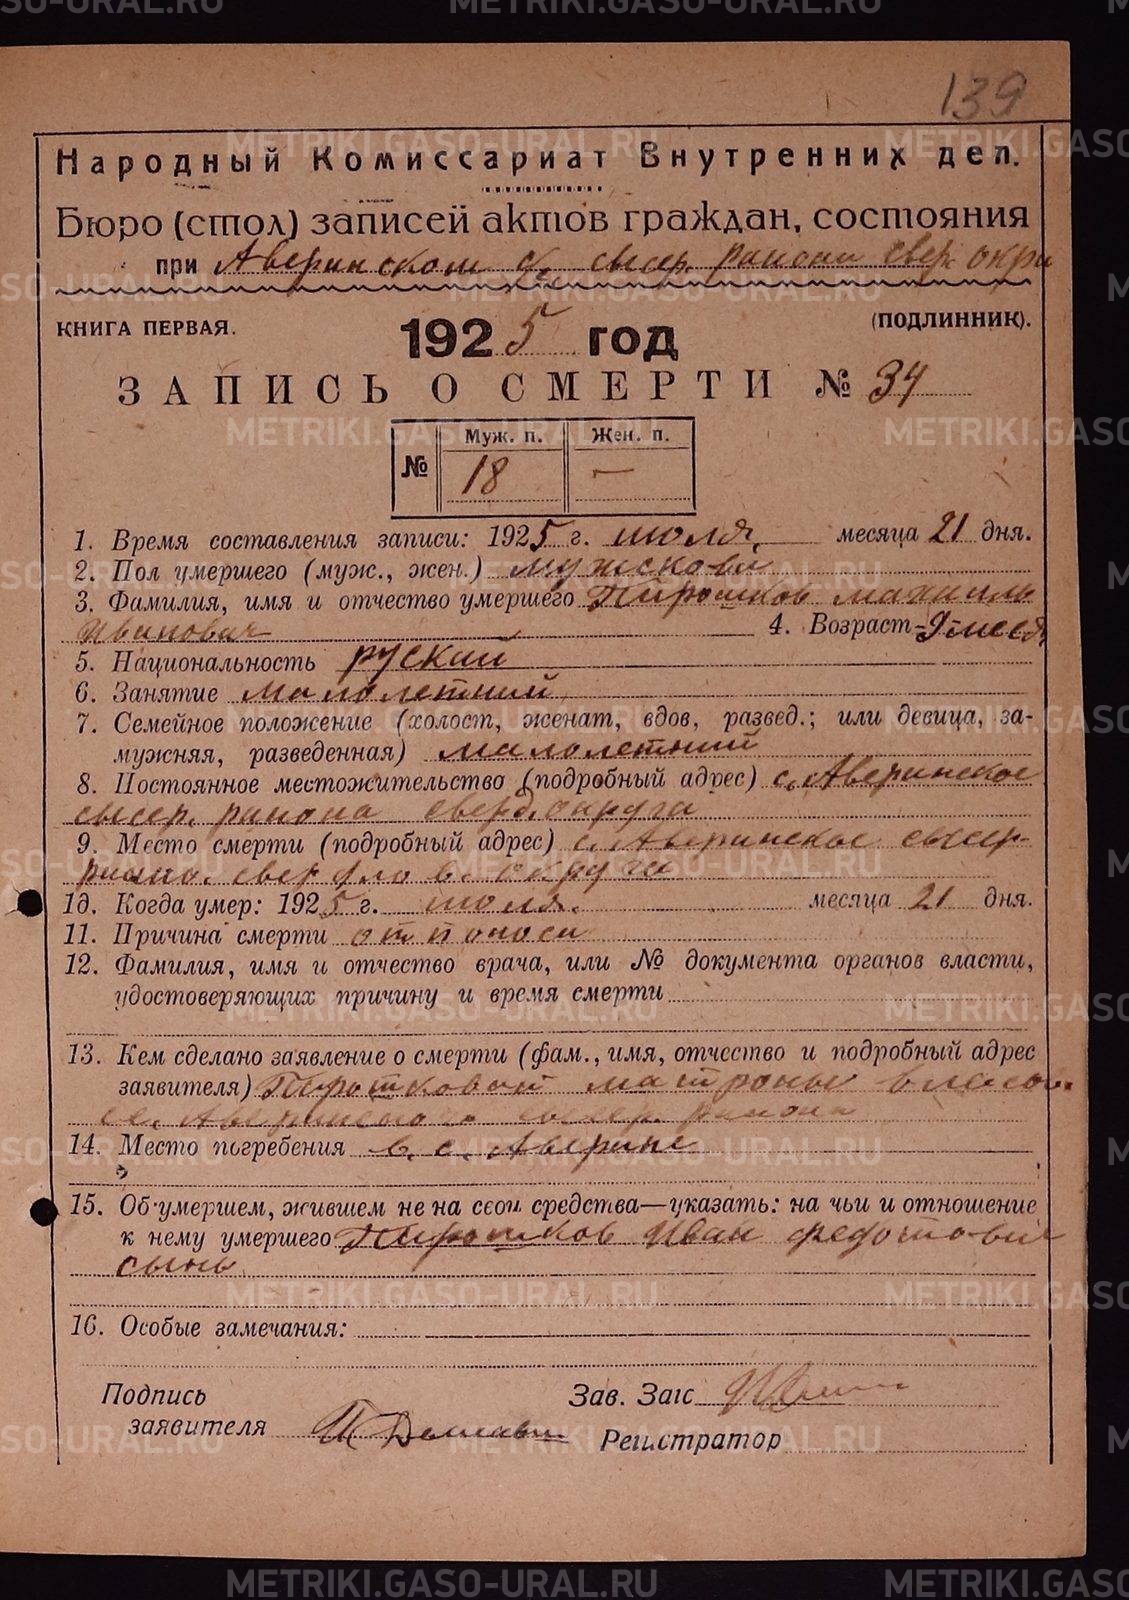 139
Народный Комиссариат Внутренних дел.
Бюро (стол) записей актов граждан, состояния
при Аверинском с/с. сысер. района сверд. окру
КНИГА ПЕРВАЯ.
(ПОДЛИННИК).
1925 год
ЗАПИСЬ О СМЕРТИ № 34
Муж. п. Жен. п.
№ 18 —
1. Время составления записи: 1925 г. июля, месяца 21 дня.
2. Пол умершего (муж., жен.) мужскова
3. Фамилия, имя и отчество умершего Пирошков
Иванович 4. Возраст 9 месяц
5. Национальность руский
6. Занятие малолетний
7. Семейное положение (холост, женат, вдов, развед.; или девица, за-
мужняя, разведенная) малолетний
8. Постоянное местожительство (подробный адрес) с. Аверинское
сысер. района сверд. округа
9. Место смерти (подробный адрес) с. Аверинское сысер
округа
10. Когда умер: 1925 г. июля. месяца 21 дня.
11. Причина смерти от поноса
12. Фамилия, имя и отчество врача, или № документа органов власти,
удостоверяющих причину и время смерти
13. Кем сделано заявление о смерти (фам., имя, отчество и подробный адрес
заявителя) Пирошковой матроны
с. Аверинского сысер. района
14. Место погребения в. с. Аверине
15. Об умершем, жившем не на свои средства—указать: на чьи и отношение
к нему умершего Пирошков Иван федотович
сынъ
16. Особые замечания:
Подпись
заявителя
Зав. Загс
Регистратор
METRIKI.GASO-URAL.RU